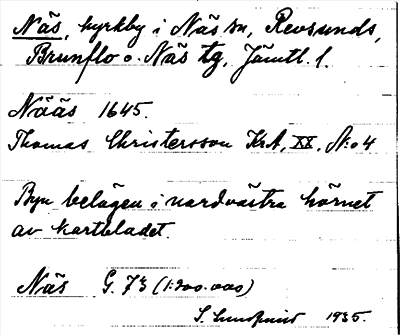 Näs, kyrkby i Näs sn, Revsunds,
Brunflo o. Näs tg, Jämtl. l.
Nääs 1645.
Thomas Christersson KrA, XX, N:o 4
Byn belägen i nordvästra hörnet
av kartbladet.
Näs G. 73 (1:200.000)
S. Lundqvist 1935.